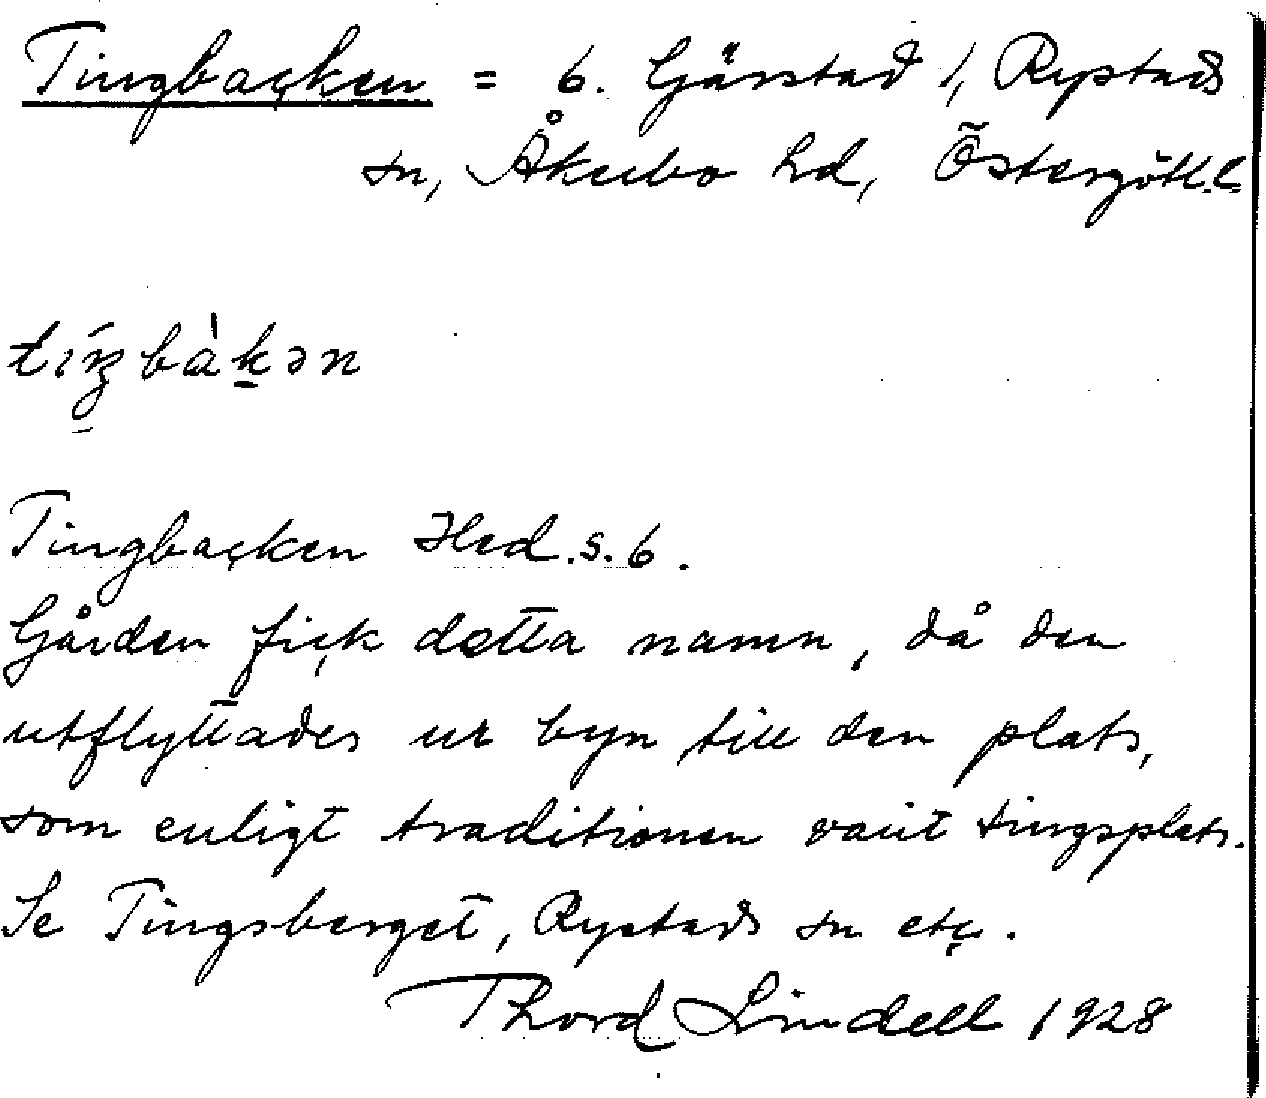 Tingbacken = 6. Gärstad 1, Rystads
sn, Åkerbo hd, Östergötl. l.
Tingbacken Hed. s. 6.
Gården fick detta namn, då den
utflyttades ur byn till den plats,
som enligt traditionen varit tingsplats.
Se Tingsberget, Rystads sn etc.
Thord Lindell 1928